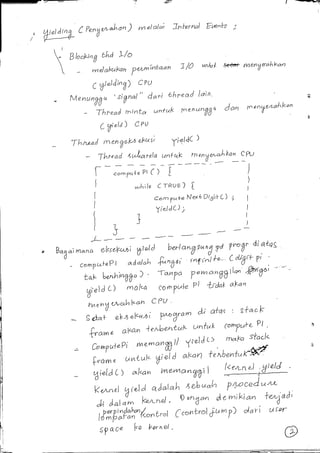 yielding (Penyerahan) melalui Internal Events :
Blocking thd I/O
- melakukan permintaan I/O untuk menyerahkan
(yielding) CPU
Menunggu "signal" dari thread lain.
- Thread minta untuk menunggu dan menyerahkan
(yield) CPU
Thread mengeksekusi Yield()
- Thread sukarela untuk menyerahkan CPU
compute PI() {
while (TRUE) {
Compute Next Digit();
Yield();
}
}
Bagaimana eksekusi yield berlangsung pd progr diatas
- computePI adalah fungsi infinite.. (digit pi
tak berhingga). Tanpa pemanggilan fungsi
yield() maka compute PI tidak akan
menyerahkan CPU.
- Saat eksekusi program di atas : stack
frame akan terbentuk untuk compute PI,
- ComputePi memanggil yield() maka stack
frame untuk yield akan terbentuk
- yield() akan memanggil kernel_yield.
Kernel yield adalah sebuah procedure
di dalam kernel. Dengan demikian terjadi
perpindahan/
lompatan kontrol (control jump) dari user
space ke kernel.
2